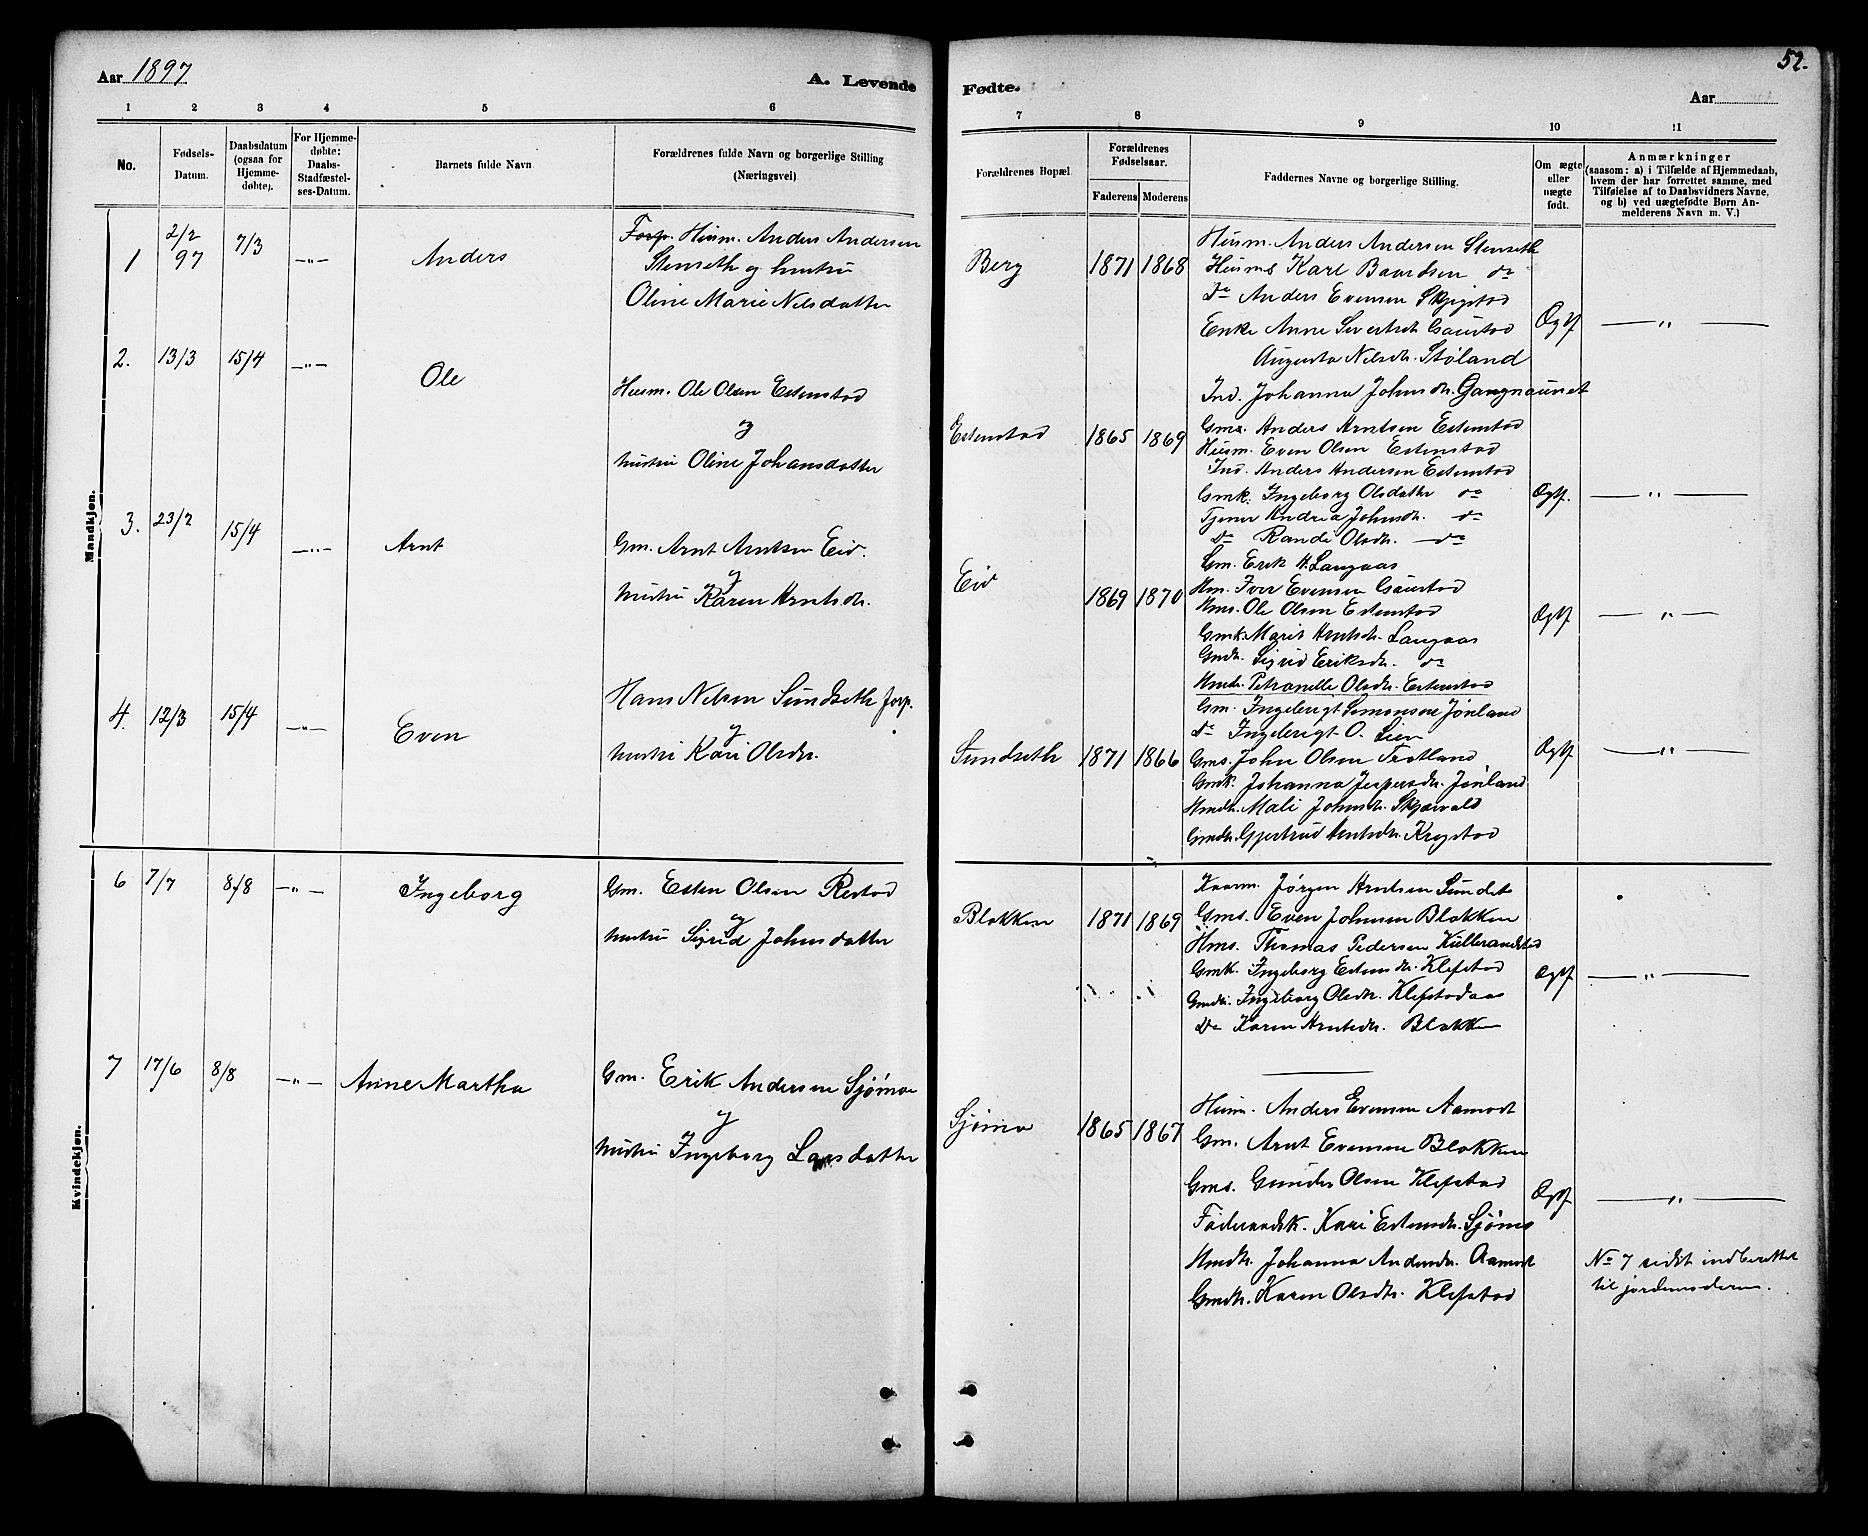 Aar 1897
A. Levende
Fødte.
52.
Aar
1 2 3 4 5 6 7 8 9 10 11
No.
Fødsels-
Datum.
Daabsdatum
(ogsaa for
Hjemme-
døbte).
For Hjemme-
døbte:
Daabs-
Stadfæstel-
ses-Datum.
Barnets fulde Navn
Forældrenes fulde Navn og borgerlige Stilling
(Næringsvei)
Forældrenes Bopæl.
Forældrenes
Fødselsaar.
Faderens
Moderens
Faddernes Navne og borgerlige Stilling.
Om ægte
eller
uægte
født.
Anmærkninger
(saasom: a) i Tilfælde af Hjemmedaab,
hvem der har forrettet samme, med
Tilføielse af to Daabsvidners Navne,
og b) ved uægtefødte Børn An-
melderens Navn m. V.)
Mandkjøn.
1 2/2 97 7/3 —"— Anders
Forp. Husm. Anders Andersen
Stenseth og hustru
Oline Marie Nilsdatter
Berg 1871 1868
Husm. Anders Andersen Stenseth
Husms Karl Baardsen do
Do Anders Evensen Skjigstad
Enke Anne Sivertsdt. Gaustad
Augusta Nilsdtr. Støland
Ind. Johanna Johnsdtr. Gangnaunet
Ægtf. —"—
2. 13/3 15/4 —"— Ole
Husm. Ole Olsen Estenstad
og
hustru Oline Johansdatter
Estenstad 1865 1869
Gms. Anders Arntsen Estenstad
Husm. Even Olsen Estenstad
Ind. Anders Andersen Estenstad
Gmk. Ingeborg Olsdatter do
Tjener Andrea Johnsdtr. do
do Randi Olsdtr. do
Ægtf. —"—
3. 23/2 15/4 —"— Arnt
Gm. Arnt Arntsen Eid.
og
hustru Karen Arntsdr.
Eid 1869 1870
Gm. Erik H. Langaas
Hm. Iver Evensen Gaustad
Hms. Ole Olsen Estenstad
Gmk. Marit Arntsdr. Langaas
Gmdr. Sigrid Eriksdr. do
Hmdr. Petranelle Olsdr. Estenstad
Ægtf. —"—
4. 12/3 15/4 —"— Even
Hans Nilsen Sundseth forp.
og
hustru Kari Olsdr.
Sundseth 1871 1866
Gm. Ingebrigt Simonsen Jønland
Do Ingebrigt O. Lien
Gms. John Olsen Trotland
Gmk. Johanna Jespersdr. Jønland
Hmdtr. Mali Johnsdr. Skjærvald
Gmdtr. Gjertrud Arntsdr. Krogstad
Ægtf. —"—
Kvindekjøn.
6 7/7 8/8 —"— Ingeborg
Gm. Esten Olsen Restad
og
hustru Sigrid Johnsdatter
Blokken 1871 1869
Kaarm. Jörgen Arntsen Sundet
Gms. Even Johnsen Blokken
Hms. Thomas Pedersen Kullerandstad
Gmk. Ingeborg Estensdr. Klefstad
Gmdr. Ingeborg Olsdtr. Klefstadaas
Do Karen Arntsdr. Blokken
Ægtf. —"—
7 17/6 8/8 —"— Anne Martha
Gm. Erik Andersen Sjømoe
og
hustru Ingeborg Larsdatter
Sjømo 1865 1867
Husm. Anders Evensen Aamodt
Gm. Arnt Evensen Blokken
Gms. Gunder Olsen Klefstad
Føderaadsk. Kari Estensdr. Sjømo
Hmdtr. Johanna Andersdr. Aamodt
Gmdtr. Karen Olsdtr. Klefstad
Ægtf. —"—
No 7 sidst indberettet
til jordemoderen.